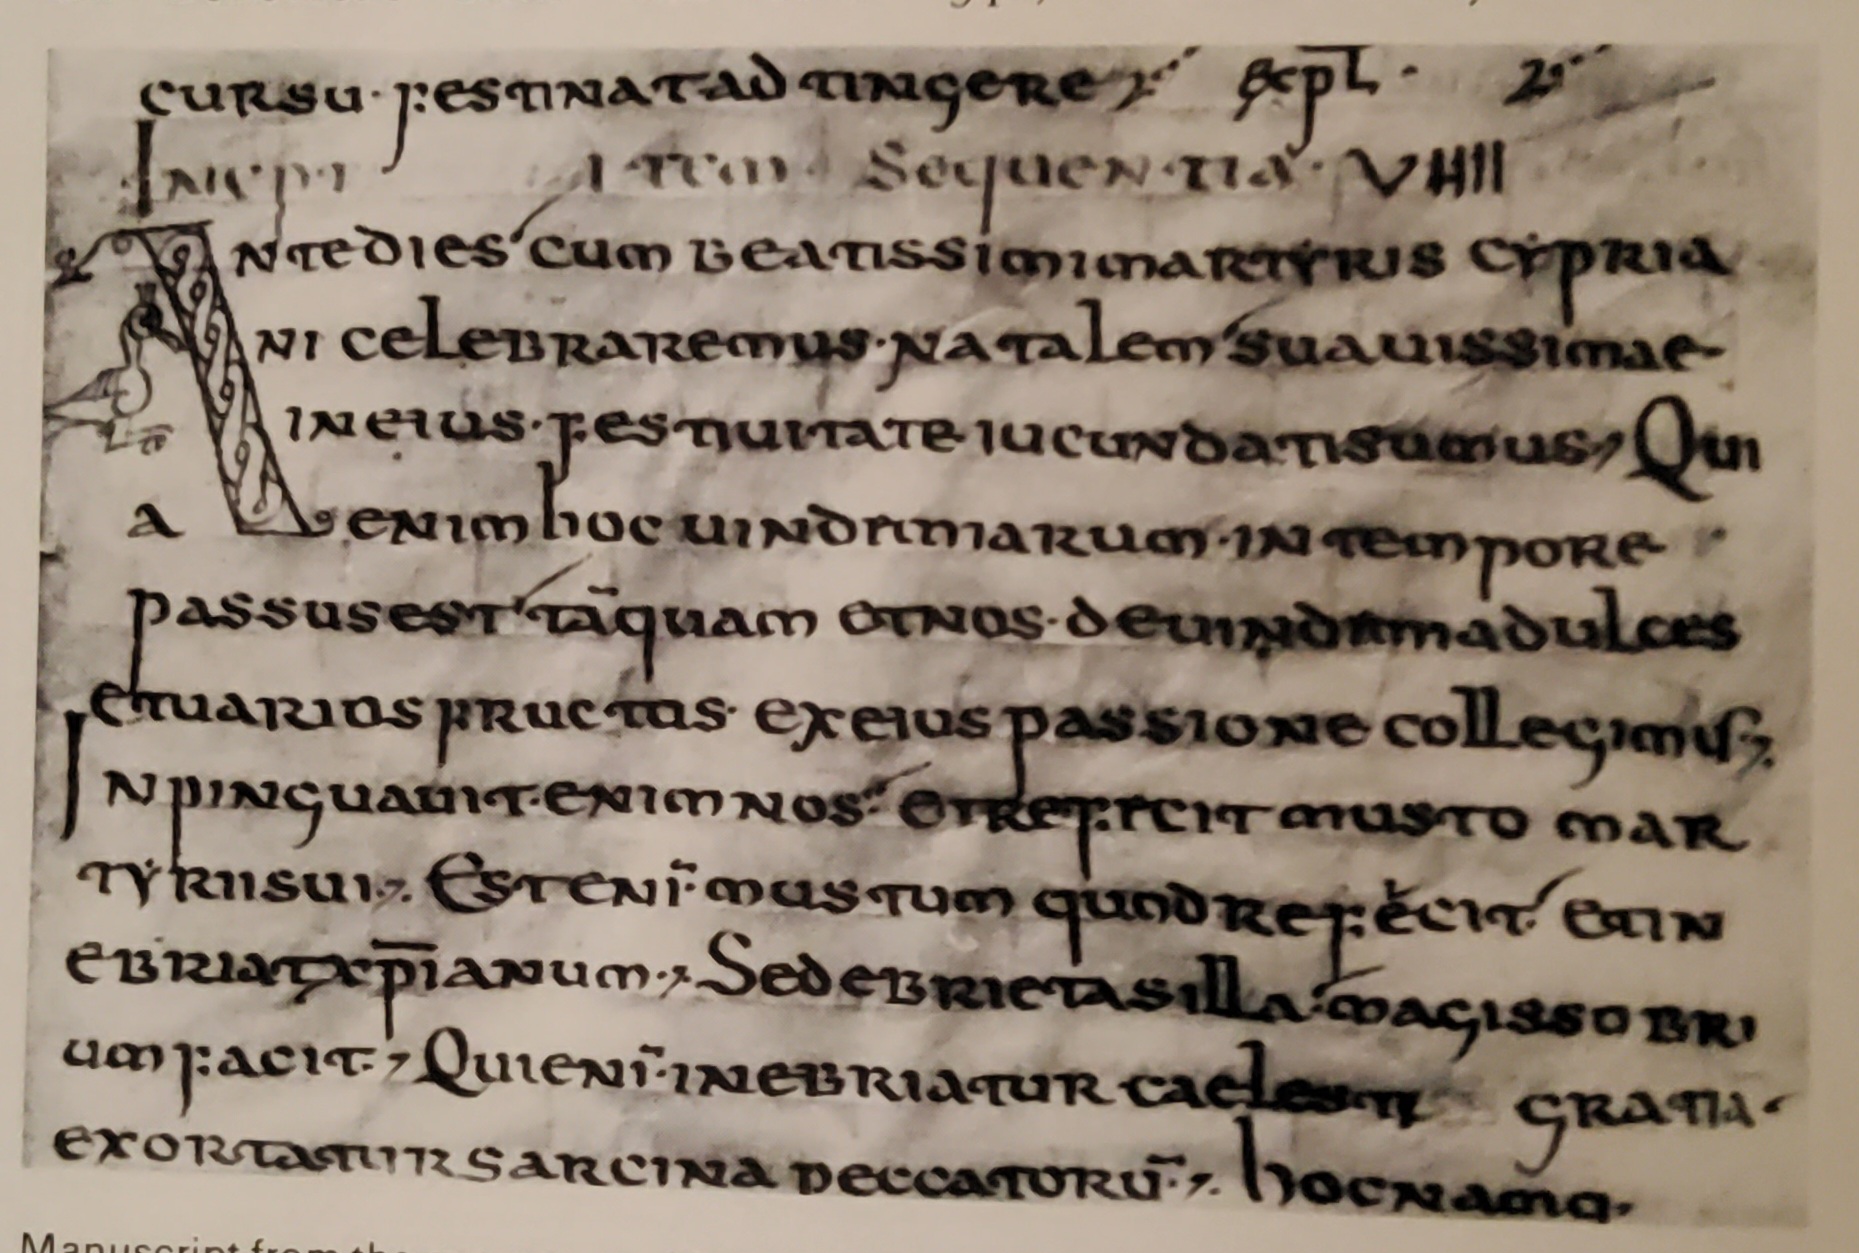 cursu· festinat ad tingere expl·
Incipi Item Sequentia· VIIII
Ante dies cum beatissimi martyris cypria
ni celebraremus· natalem suauissimae
in eius· festiuitate· iucundati sumus, Qui
a enim hoc uindimiarum· in tempore
passus est tāquam et nos· de uindimia dulces
et uarios fructus· ex eius passione collegimus,
Inpinguauit· enim nos· et refecit musto mar
tyrii sui,. Est enī· mustum quod refecit· et in
ebriat xp̄ianum·, Sed ebrietas illa· magis sobri
um facit·, Qui enī· inebriatur caelesti gratia·
exortatur sarcina peccatorū·,. hoc
Manuscript from the